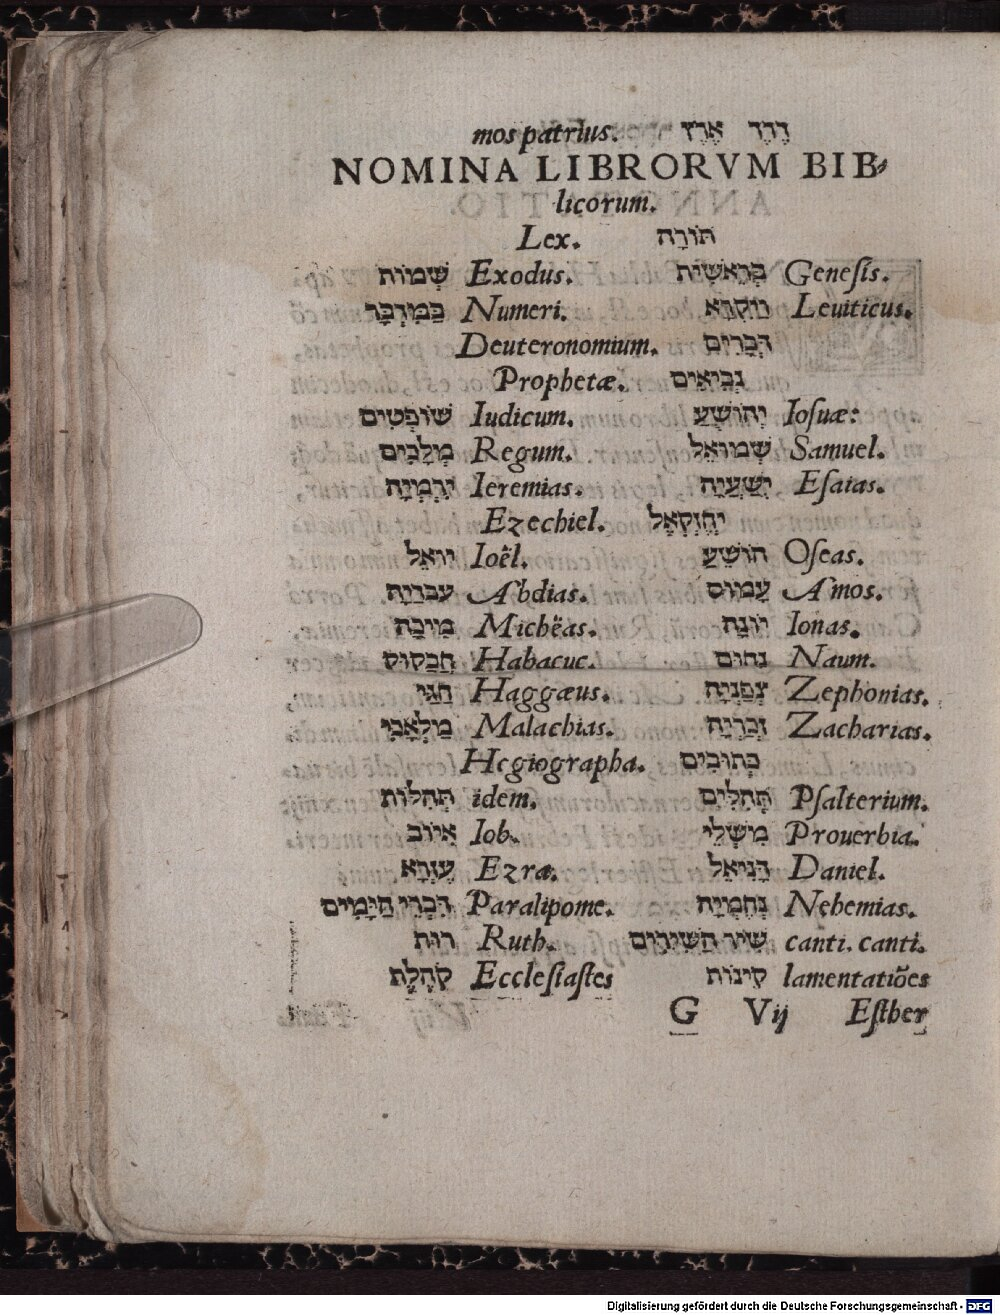 mos patrius. דֶרֶך אֶרֶץ
NOMINA LIBRORVM BIB⸗
licorum.
Lex. תּוֹרָה
שְׁמוֹת Exodus. בְּרֵאשִׁית Geneſis.
בַּמִּדְבָּר Numeri. וַיִּקְרָא Leuiticus.
Deuteronomium. דְּבָרִים
Prophetæ. נְבִיאִים
שׁוֹפְטִים Iudicum. יְהוֹשֻׁעַ Ioſuæ:
מְלָכִים Regum. שְׁמוּאֵל Samuel.
יִרְמְיָה Ieremias. יְשַׁעְיָה Eſaias.
Ezechiel. יְחֶזְקֵאל
יוֹאֵל Ioël. הוֹשֵׁעַ Oſeas.
עֹבַדְיָה Abdias. עָמוֹס Amos.
מִיכָה Michëas. יוֹנָה Ionas.
חֲבַקּוּק Habacuc. נַחוּם Naum.
חַגַּי Haggæus. צְפַנְיָה Zephonias.
מַלְאָכִי Malachias. זְכַרְיָה Zacharias.
Hegiographa. כְּתוּבִים
תְּהִלּוֹת idem. תְּהִלִּים Pſalterium.
אִיּוֹב Iob. מִשְׁלֵי Prouerbia.
עֶזְרָא Ezra. דָּנִיֵּאל Daniel.
דִּבְרֵי הַיָּמִים Paralipome. נְחֶמְיָה Nehemias.
רוּת Ruth. שִׁיר הַשִּׁירִים canti. canti.
קֹהֶלֶת Eccleſiaſtes קִינוֹת lamentatiões
G Vij Eſther
Digitalisierung gefördert durch die Deutsche Forschungsgemeinschaft - DFG